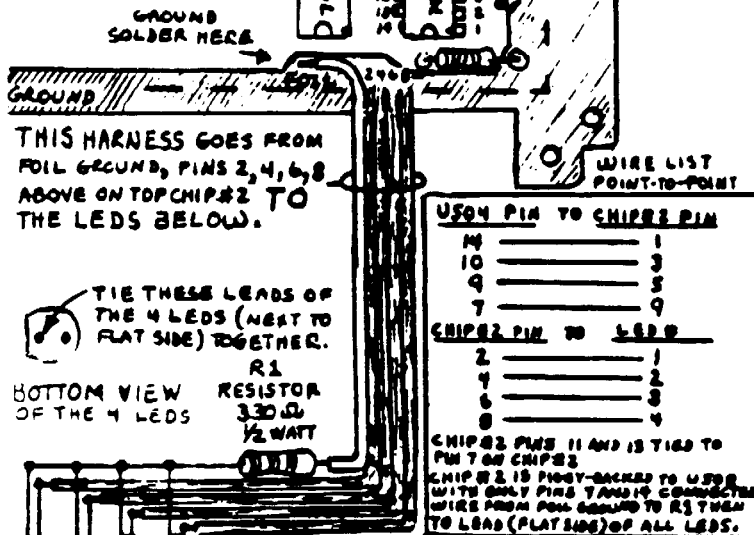 GROUND
SOLDER HERE
FOIL
2468
GROUND
THIS HARNESS GOES FROM
FOIL GROUND, PINS 2, 4, 6, 8
ABOVE ON TOP CHIP#2 TO
THE LEDS BELOW.
TIE THESE LEADS OF
THE 4 LEDS (NEXT TO
FLAT SIDE) TOGETHER.
BOTTOM VIEW
OF THE 4 LEDS
R1
RESISTOR
330 Ω
1/2 WATT
WIRE LIST
POINT-TO-POINT
U504 PIN TO CHIP#2 PIN
14 1
10 3
9 5
7 9
CHIP#2 PIN TO LED#
2 1
4 2
6 3
8 4
CHIP#2 PINS 11 AND 13 TIED TO
PIN 7 ON CHIP#2
CHIP#2 IS PIGGY-BACKED TO U508
WITH ONLY PINS 7 AND 14 CONNECTED
WIRE FROM FOIL GROUND TO R1 THEN
TO LEAD (FLAT SIDE) OF ALL LEDS.